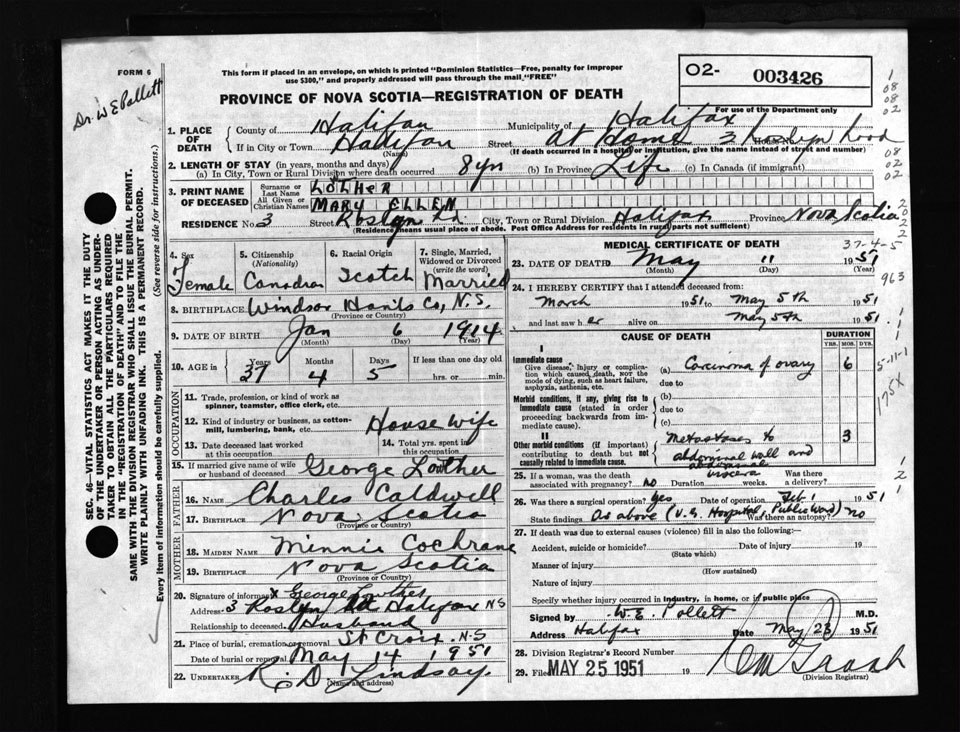 FORM 6
Dr. W E Pollett
This form if placed in an envelope, on which is printed "Dominion Statistics—Free, penalty for improper
use $300," and properly addressed will pass through the mail "FREE"
O2- 003426
PROVINCE OF NOVA SCOTIA—REGISTRATION OF DEATH
For use of the Department only
1. PLACE OF DEATH
County of Halifax Municipality of Halifax
If in City or Town Halifax Street At Home 3 Road
(Name) (If death occurred in a hospital or institution, give the name instead of street and number)
2. LENGTH OF STAY (in years, months and days)
(a) In City, Town or Rural Division where death occurred 8 yrs (b) In Province Life (c) In Canada (if immigrant)
3. PRINT NAME OF DECEASED
Surname or Last Name LOTHER
All Given or Christian Names MARY ELLEN
RESIDENCE No. 3 Street Roslyn Rd. City, Town or Rural Division Halifax Province Nova Scotia
(Residence means usual place of abode. Post Office Address for residents in rural parts not sufficient)
4. Sex Female
5. Citizenship (Nationality) Canadian
6. Racial Origin Scotch
7. Single, Married, Widowed or Divorced (write the word) Married
8. BIRTHPLACE Windsor Hants Co, N.S.
(Province or Country)
9. DATE OF BIRTH Jan 6 1914
(Month) (Day) (Year)
10. AGE in Years 37 Months 4 Days 5 If less than one day old hrs. or min.
OCCUPATION
11. Trade, profession, or kind of work as spinner, teamster, office clerk, etc.
12. Kind of industry or business, as cotton-mill, lumbering, bank, etc. Housewife
13. Date deceased last worked at this occupation
14. Total yrs. spent in this occupation
15. If married give name of wife or husband of deceased George Lowther
FATHER
16. NAME Charles Caldwell
17. BIRTHPLACE Nova Scotia
(Province or Country)
MOTHER
18. MAIDEN NAME Minnie Cochrane
19. BIRTHPLACE Nova Scotia
(Province or Country)
20. Signature of informant x George Lowther
Address 3 Roslyn Halifax NS
Relationship to deceased Husband
21. Place of burial, cremation or removal St Croix, N.S
Date of burial or removal May 14 1951
22. UNDERTAKER R. D. Lindsay
(Name and address)
MEDICAL CERTIFICATE OF DEATH
37-4-5
23. DATE OF DEATH May 11 1951
(Month) (Day) (Year)
24. I HEREBY CERTIFY that I attended deceased from:
March 1951 to May 5th 1951
and last saw her alive on May 5th 1951
CAUSE OF DEATH
DURATION
YRS. MOS. DYS.
I
Immediate cause
Give disease, injury or complication which caused death, not the mode of dying, such as heart failure, asphyxia, asthenia, etc.
(a) Carcinoma of ovary 6
due to
Morbid conditions, if any, giving rise to immediate cause (stated in order proceeding backwards from immediate cause).
(b)
due to
(c)
II
Other morbid conditions (if important) contributing to death but not causally related to immediate cause.
Metastases to 3
abdominal wall and
abdominal
viscera
25. If a woman, was the death associated with pregnancy? No Duration weeks. Was there a delivery?
26. Was there a surgical operation? Yes Date of operation Feb. 1 1951
State findings As above (V.G. Hospital, Public Ward) Was there an autopsy? No
27. If death was due to external causes (violence) fill in also the following:
Accident, suicide or homicide? Date of injury 19
(State which)
Manner of injury
(How sustained)
Nature of injury
Specify whether injury occurred in industry, in home, or in public place
Signed by W. E. Pollett M.D.
Address Halifax Date May 23 1951
28. Division Registrar's Record Number
29. Filed MAY 25 1951
(Division Registrar)
SEC. 46—VITAL STATISTICS ACT MAKES IT THE DUTY
OF THE UNDERTAKER OR PERSON ACTING AS UNDER-
TAKER TO OBTAIN ALL THE PARTICULARS REQUIRED
IN THE "REGISTRATION OF DEATH" AND TO FILE THE
SAME WITH THE DIVISION REGISTRAR WHO SHALL ISSUE THE BURIAL PERMIT.
WRITE PLAINLY WITH UNFADING INK. THIS IS A PERMANENT RECORD.
Every item of information should be carefully supplied. (See reverse side for instructions.)
1
08
08
02
08
02
02
2
0
2
2
963
5-11-1
175X
1
2
1